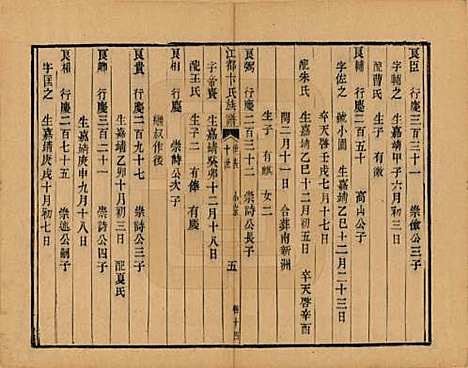 良臣 行慶三百三十一 崇儉公三子
字輔之 生嘉靖甲子六月初三日
配曹氏 生子 有徵
良輔 行慶二百五十 高山公子
字佐之 號小園 生嘉靖乙巳十二月二十三日
卒天啓壬戌七月十七日
配朱氏 生嘉靖乙巳十二月初五日 卒天啓辛酉
閏二月十一日 合葬南新洲
生子 有麒 女二
良弼 行慶二百三十二 崇詩公長子
江都卞氏族譜 世表 十世 五
字童賚 生嘉靖癸卯十二月十八日
配王氏 生子二 有俸 有慶
良相 行慶 崇詩公次子
繼叔作後
良貴 行慶二百九十七 崇詩公三子
生嘉靖乙卯十月初三日 配夏氏
良卿 行慶三百二十一 崇詩公四子
生嘉靖庚申九月十八日
良相 行慶二百七十五 崇述公嗣子
字匡之 生嘉靖庚戌十月初七日